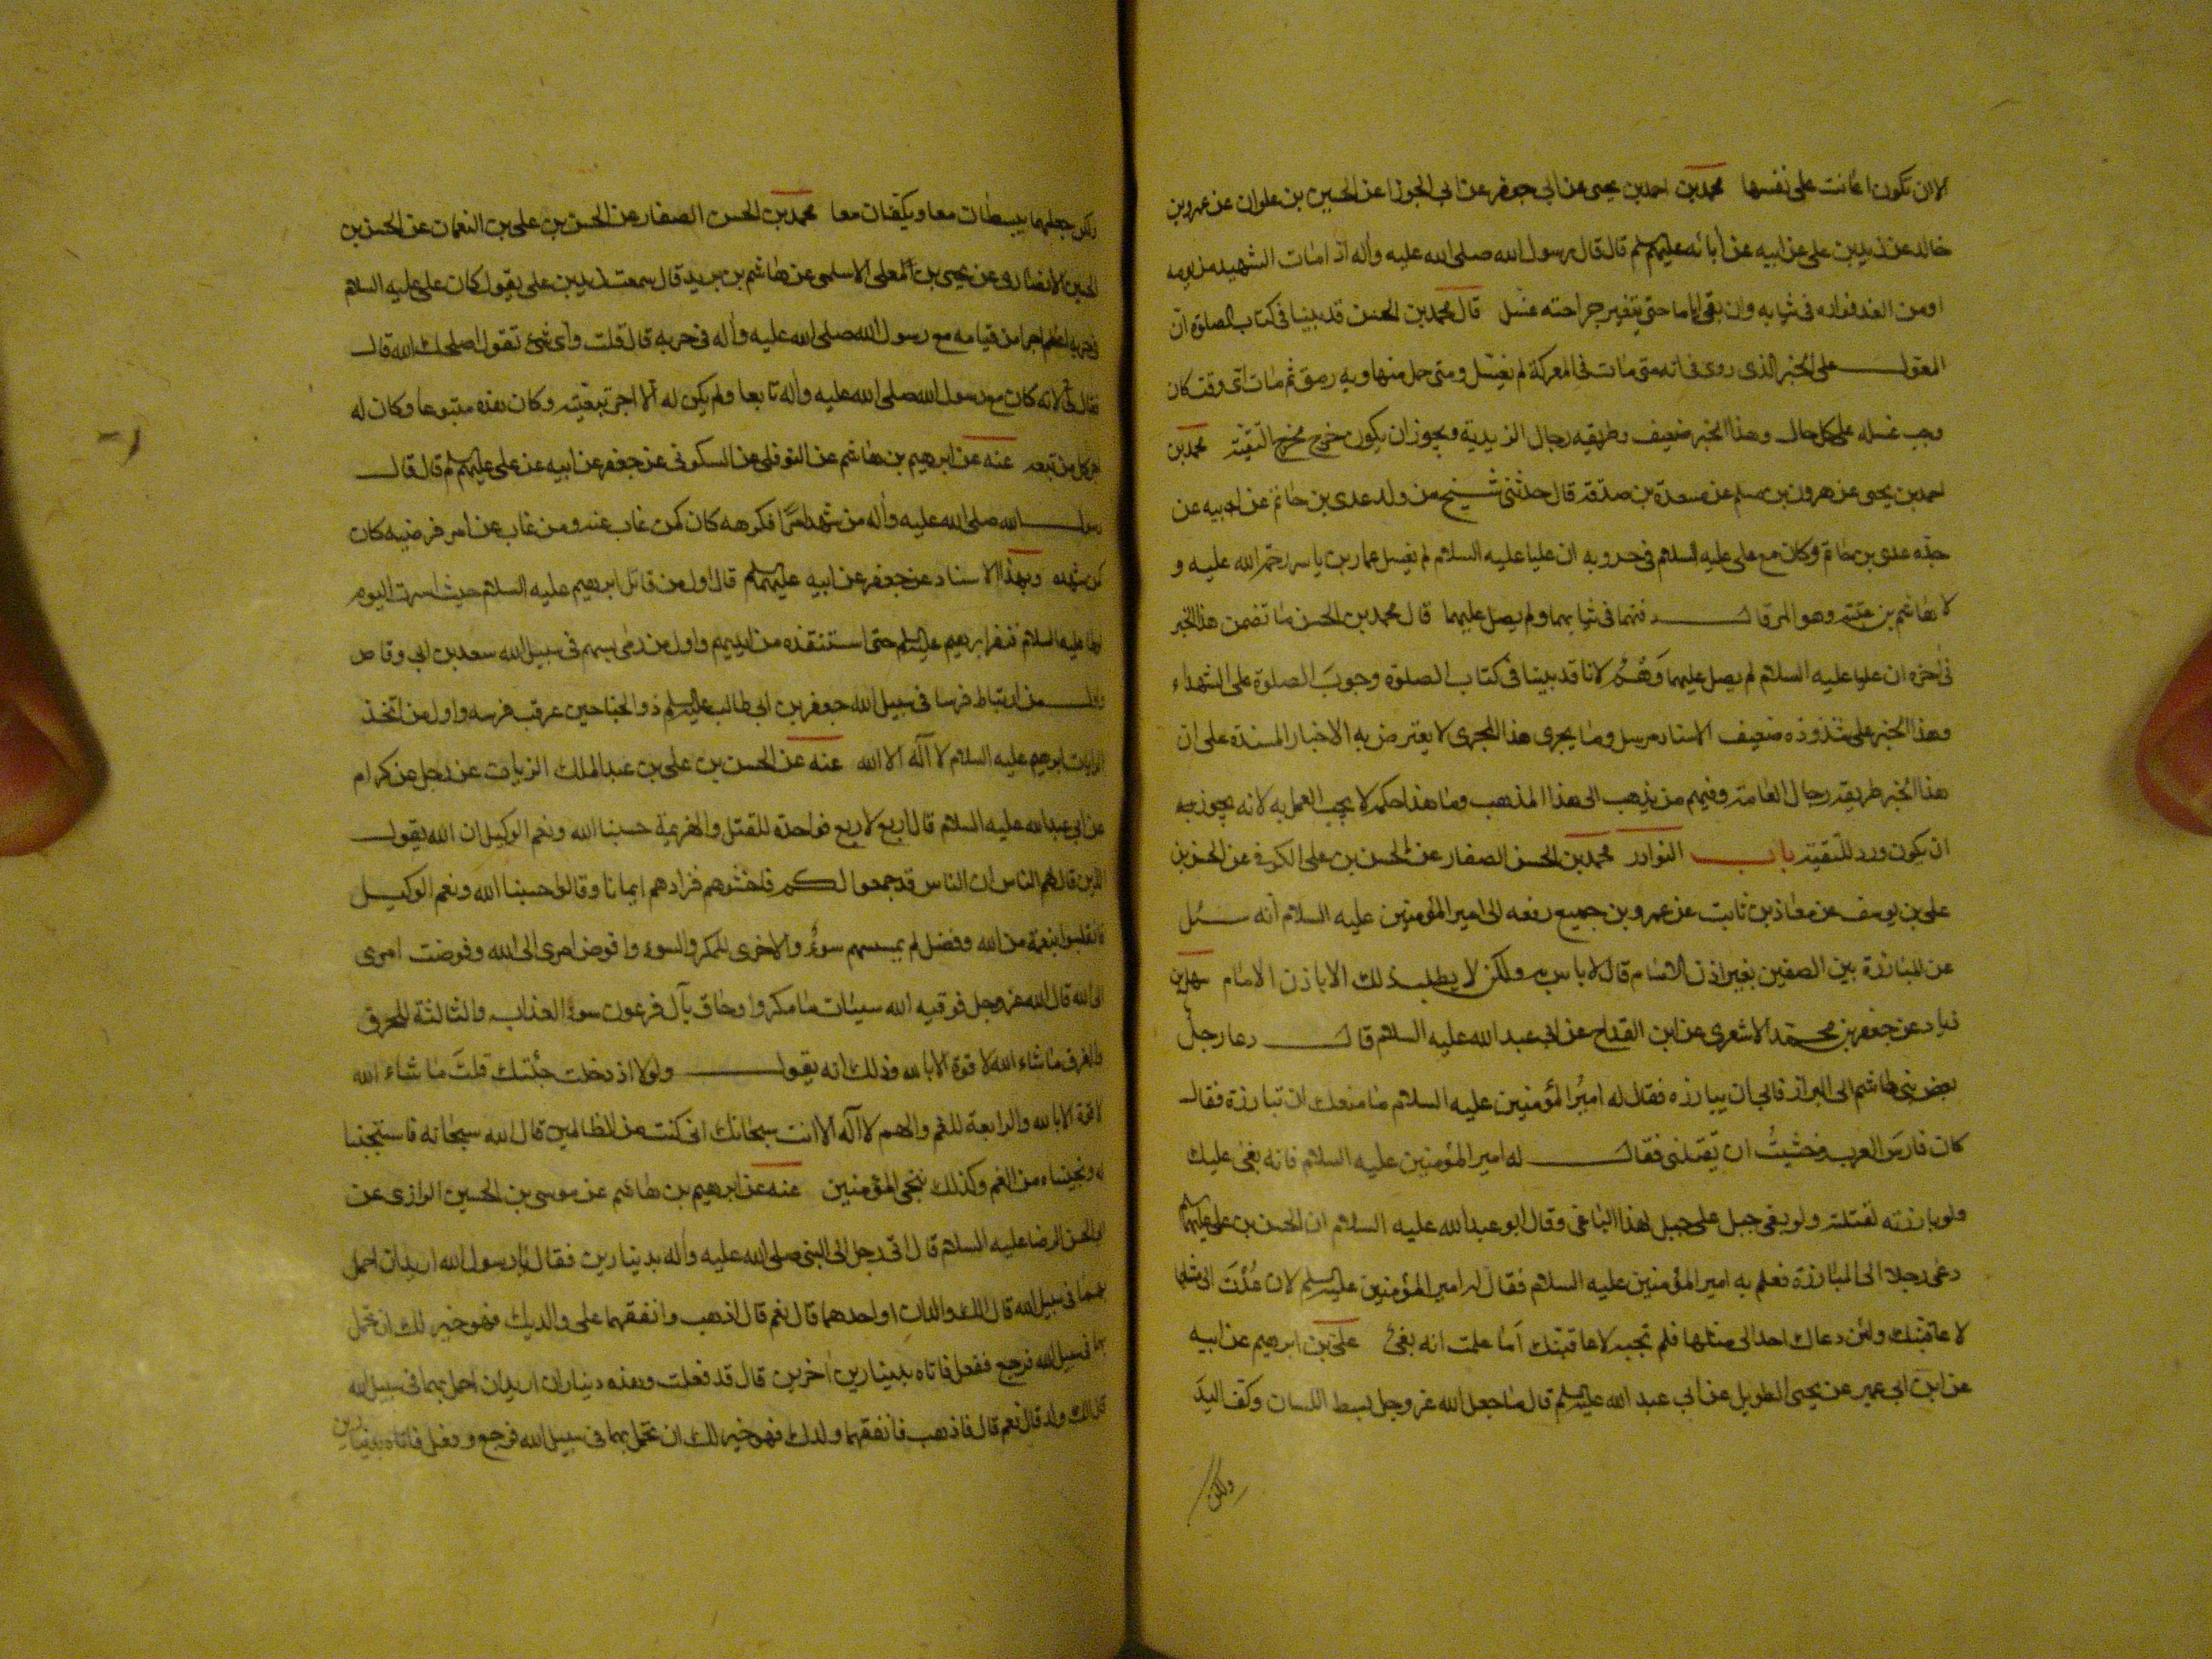 الا ان تكون اعانت على نفسها محمد بن احمد بن يحيى عن ابي جعفر عن ابي الجوزا عن الحسين بن علوان عن عمرو بن
خالد عن زيد بن علي عن ابيه عن آبائه عليهم لم قال قال رسول الله صلى الله عليه وآله اذا مات الشهيد من يومه
او من الغد فواره في ثيابه وان بقي اياما حتى يتغير جراحته غسل قال محمد بن الحسن قد بينا في كتاب الصلوة ان
المعول على الخبر الذي روي في انه متى مات في المعركة لم يغسل ومتى حمل منها وبه رمق ثم مات اي وقت كان
وجب غسله على كل حال وهذا الخبر ضعيف وطريقه رجال الزيدية ويجوز ان يكون خرج مخرج التقية محمد بن
احمد بن يحيى عن هرون بن مسلم عن مسعدة بن صدقة قال حدثني شيخ من ولد عدي بن حاتم عن ابيه عن
جده عدي بن حاتم وكان مع علي عليه السلام في حروبه ان عليا عليه السلام لم يغسل عمار بن ياسر رحمة الله عليه و
لا هاشم بن عتبة وهو المرقال دفنهما في ثيابهما ولم يصل عليهما قال محمد بن الحسن ما تضمن هذا الخبر
في آخره ان عليا عليه السلام لم يصل عليهما وهم لانا قد بينا في كتاب الصلوة وجوب الصلوة على الشهداء
وهذا الخبر على شذوذه ضعيف الاسناد مرسل وما يجري هذا المجرى لا يعترض به الاخبار المسندة على ان
هذا الخبر طريقه رجال العامة وفيهم من يذهب الى هذا المذهب وما هذا حكمه لا يجب العمل به لانه يجوز
ان يكون ورد للتقية باب النوادر محمد بن الحسن الصفار عن الحسن بن علي الكوفي عن الحسن بن
علي بن يوسف عن معاذ بن ثابت عن عمرو بن جميع رفعه الى امير المؤمنين عليه السلام انه سئل
عن المبارزة بين الصفين بغير اذن الامام قال لا باس به ولكن لا يطلب ذلك الا باذن الامام سهل بن
زياد عن جعفر بن محمد الاشعري عن ابن القداح عن ابي عبد الله عليه السلام قال دعا رجل
بعض بني هاشم الى البراز فابى ان يبارزه فقال له امير المؤمنين عليه السلام ما منعك ان تبارزه فقال
كان فارس العرب وخشيت ان يقتلني فقال له امير المؤمنين عليه السلام فانه بغى عليك
ولو بارزته لقتلته ولو بغى جبل على جبل لهذا الباغي وقال ابو عبد الله عليه السلام ان الحسن بن علي عليهما
دعى رجلا الى المبارزة فعلم به امير المؤمنين عليه السلام فقال له امير المؤمنين عليه لم لان عدت الى مثلها
لاعاقبنك ولئن دعاك احد الى مثلها فلم تجبه لاعاقبنك اما علمت انه بغى علي بن ابرهيم عن ابيه
عن ابن ابي عمير عن يحيى الطويل عن ابي عبد الله عليه لم قال ما جعل الله عز وجل بسط اللسان وكف اليد
ولكن
ولكن جعلهما يبسطان معا ويكفان معا محمد بن الحسن الصفار عن الحسن بن علي بن النعمان عن الحسن بن
الحسين الانصاري عن يحيى بن المعلى الاسلمي عن هاشم بن بريد قال سمعت زيد بن علي يقول كان علي عليه السلام
في حربه اعظم اجرا من قيامه مع رسول الله صلى الله عليه وآله في حربه قال قلت واي شيء تقول اصلحك الله قال
فقال لي لانه كان مع رسول الله صلى الله عليه وآله تابعا ولم يكن له الا اجر تبعيته وكان بهذه متبوعا وكان له
اجر كل من تبعه عنه عن ابرهيم بن هاشم عن النوفلي عن السكوني عن جعفر عن ابيه عن علي عليهم لم قال قال
رسول الله صلى الله عليه وآله من شهد امرا فكرهه كان كمن غاب عنه ومن غاب عن امر فرضيه كان
كمن شهده وبهذا الاسناد عن جعفر عن ابيه عليهما لم قال اول من قاتل ابرهيم عليه السلام حيث اسرت الروم
لوطا عليه السلام فنفر ابرهيم عليه لم حتى استنقذه من ايديهم واول من رمى بسهم في سبيل الله سعد بن ابي وقاص
واول من ارتباط فرسا في سبيل الله جعفر بن ابي طالب عليه لم ذو الجناحين عرقب فرسه واول من اتخذ
الرايات ابرهيم عليه السلام لا اله الا الله عنه عن الحسن بن علي بن عبد الملك الزيات عن رجل عن كرام
عن ابي عبد الله عليه السلام قال اربع لاربع فواحدة للقتل والهزيمة حسبنا الله ونعم الوكيل ان الله يقول
الذين قال لهم الناس ان الناس قد جمعوا لكم فاخشوهم فزادهم ايمانا وقالوا حسبنا الله ونعم الوكيل
فانقلبوا بنعمة من الله وفضل لم يمسسهم سوء والاخرى للمكر والسوء وافوض امري الى الله وفوضت امري
الى الله قال الله عز وجل فوقيه الله سيئات ما مكروا وحاق بآل فرعون سوء العذاب والثالثة للحرق
والغرق ما شاء الله لا قوة الا بالله وذلك انه يقول ولولا اذ دخلت جنتك قلت ما شاء الله
لا قوة الا بالله والرابعة للغم والهم لا اله الا انت سبحانك اني كنت من الظالمين قال الله سبحانه فاستجبنا
له ونجيناه من الغم وكذلك ننجي المؤمنين عنه عن ابرهيم بن هاشم عن موسى بن الحسين الرازي عن
ابي الحسن الرضا عليه السلام قال اتى رجل الى النبي صلى الله عليه وآله بدينارين فقال يا رسول الله اريد ان احمل
بهما في سبيل الله قال الك والدان او احدهما قال نعم قال اذهب وانفقهما على والديك فهو خير لك ان تحمل
بهما في سبيل الله فرجع ففعل فاتاه بدينارين آخرين قال قد فعلت وهذه ديناران اريد ان احمل بهما في سبيل الله
قال الك ولد قال نعم قال فاذهب فانفقهما ولدك فهو خير لك ان تحمل بهما في سبيل الله فرجع وفعل فاتاه بدينارين